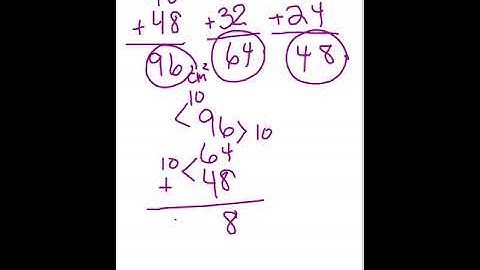 + 48 +32 +24
96 cm² 64 48
10
< 96 > 10
10 < 64
+ 48
8